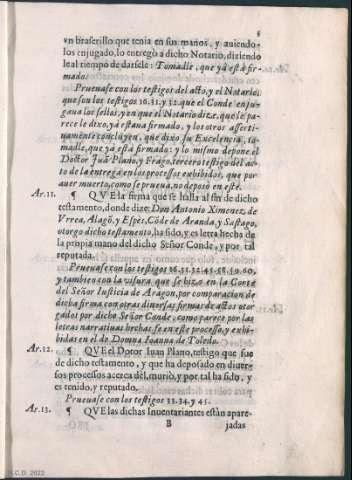 6
vn braserillo que tenia en sus manos, y auiendo-
los enjugado, lo entregò a dicho Notario, diziendo
le al tiempo de darsele: Tomadle, que yà està fir-
mado.
Prueuase con los testigos del acto, y el Notario,
que son los testigos 16.31. y 32. que el Conde enju-
gaua los sellos, y en que el Notario dize, que le pa-
rece le dixo, yà estaua firmado, y los otros assertiuamente concluyen, que dixo su Excelencia, to-
madle, que yà està firmado: y lo mismo depone el
Doctor Juã Plano, y Frago, tercero testigo del ac-
to de la entrega en los processos exhibidos, que por
auer muerto, como se prueua, no deposò en estè.
Ar.11. ¶ QVE la firma que se halla al fin de dicho
testamento, donde dize: Don Antonio Ximenez, de
Vrrea, Alagõ, y Espès, Cõde de Aranda, y Sastago,
otorgo dicho testamento, ha sido, y es letra hecha de
la propia mano del dicho Señor Conde, y por tal
reputada.
Prueuase con los testigos 16.31.32.45.58.59.60.
y tambien con la visura que se hizo en la Corte
del Señor Iusticia de Aragon, por comparacion de
dicha firma con otras diuersas firmas de actos otor
gados por dicho Señor Conde, como parece por las
letras narratiuas hechas en este processo, y exhi-
bidas en el de Domna Joanna de Toledo.
Ar.12. ¶ QVE el Dotor Iuan Plano, testigo que fue
de dicho testamento, y que ha deposado en diuer-
sos processos acerca dèl, muriò, y por tal ha sido, y
es tenido, y reputado.
Prueuase con los testigos 33.34. y 45.
Ar.13. ¶ QVE las dichas Inuentariantes estàn apare-
B jadas
C.D. 2622